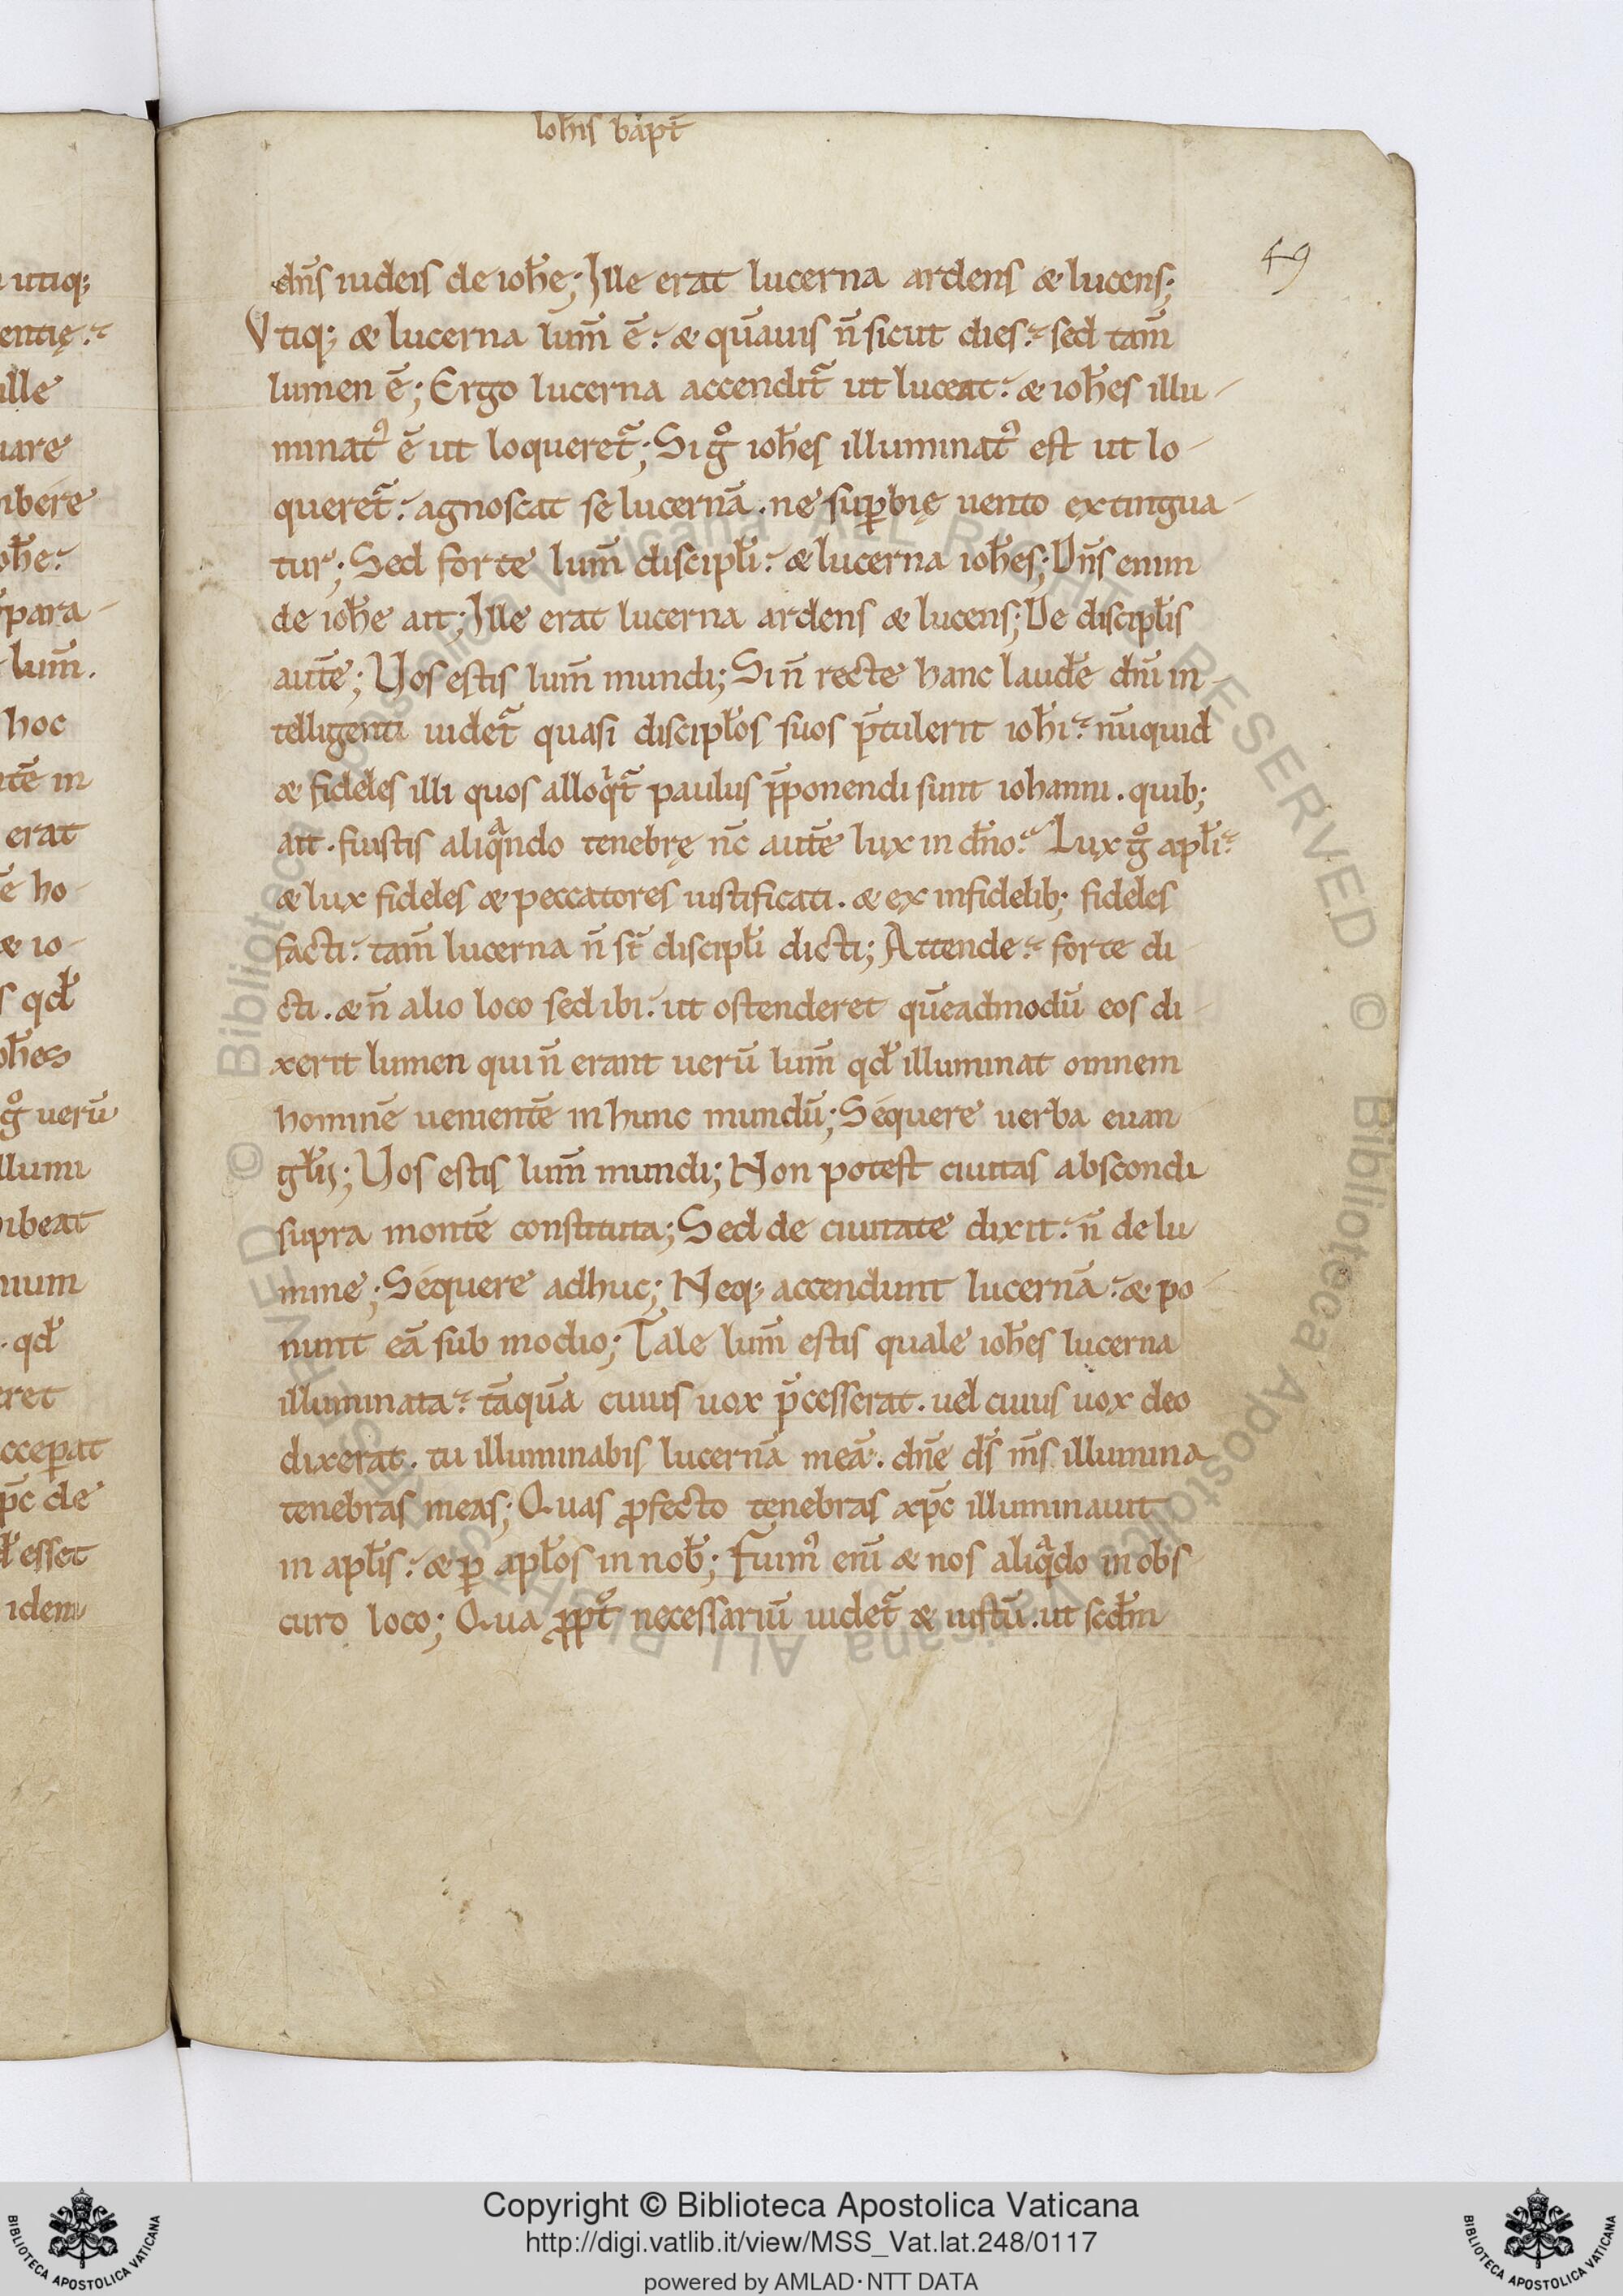 Ioh̅is bapt̅
49
dn̅s iudeis de ioh̅e; Ille erat lucerna ardens & lucens;
Vtiq; & lucerna lum̅ e̅. & qua̅uis n̅ sicut dies. sed tam̅
lumen e̅; Ergo lucerna accendit̃ ut luceat. & ioh̅es illu-
minat᾿ e̅ ut loqueret̃; Si gͦ ioh̅es illuminat᾿ est ut lo-
queret̃. agnoscat se lucerna̅. ne suꝑbię uento extingua-
tur; Sed forte lum̅ discipl̅i. & lucerna ioh̅es; Dn̅s enim
de ioh̅e ait; Ille erat lucerna ardens & lucens; De discipl̅is
aute̅; Vos estis lum̅ mundi; Si n̅ recte hanc laude̅ dn̅i in-
telligenti uidet̃ quasi discipl̅os suos p̅tulerit ioh̅i. nu̅quid
& fideles illi quos alloqͥt̃ paulus p̅ponendi sunt iohanni. quib;
ait. fuistis aliqͣndo tenebrę nc̅ aute̅ lux in dn̅o. Lux gͦ apl̅i.
& lux fideles & peccatores iustificati. & ex infidelib; fideles
facti. tam̅ lucerna n̅ st̅ discipl̅i dicti; Attende. forte di
cti. & n̅ alio loco sed ibi. ut ostenderet que̅admodu̅ eos di-
xerit lumen qui n̅ erant ueru̅ lum̅ qd̅ illuminat omnem
homine̅ ueniente̅ in hunc mundu̅; Sequere uerba euan-
gl̅ij; Vos estis lum̅ mundi; Non potest ciuitas abscondi
supra monte̅ constituta; Sed de ciuitate dixit. n̅ de lu
mine; Sequere adhuc; Neq; accendunt lucerna̅. & po-
nunt ea̅ sub modio; Tale lum̅ estis quale ioh̅es lucerna
illuminata. ta̅qua̅ cuius uox p̅cesserat. uel cuius uox deo
dixerat. tu illuminabis lucerna̅ mea̅. dn̅e ds̅ ms̅ illumina
tenebras meas; Quas ꝓfecto tenebras xpc̅ illuminauit
in apl̅is. & ꝑ apl̅os in nob̅; Fuim᾿ eni̅ & nos aliqͣdo in obs-
curo loco; Qua ꝓpt̃ necessariu̅ uidet̃ & iustu̅. ut scd̅m
utiq;
entię.
ille
ibere
oh̅e.
para-
lum̅.
hoc
erat
ho-
& io-
qd̅
oh̅es
gͦ ueru̅
llumi
ibeat
qd̅
ret
de
esset
idem
© Biblioteca Apostolica Vaticana ALL RIGHTS RESERVED © Biblioteca Apostolica Vaticana ALL RIGHTS RESERVED
Copyright © Biblioteca Apostolica Vaticana
http://digi.vatlib.it/view/MSS_Vat.lat.248/0117
powered by AMLAD·NTT DATA
BIBLIOTECA APOSTOLICA VATICANA
BIBLIOTECA APOSTOLICA VATICANA